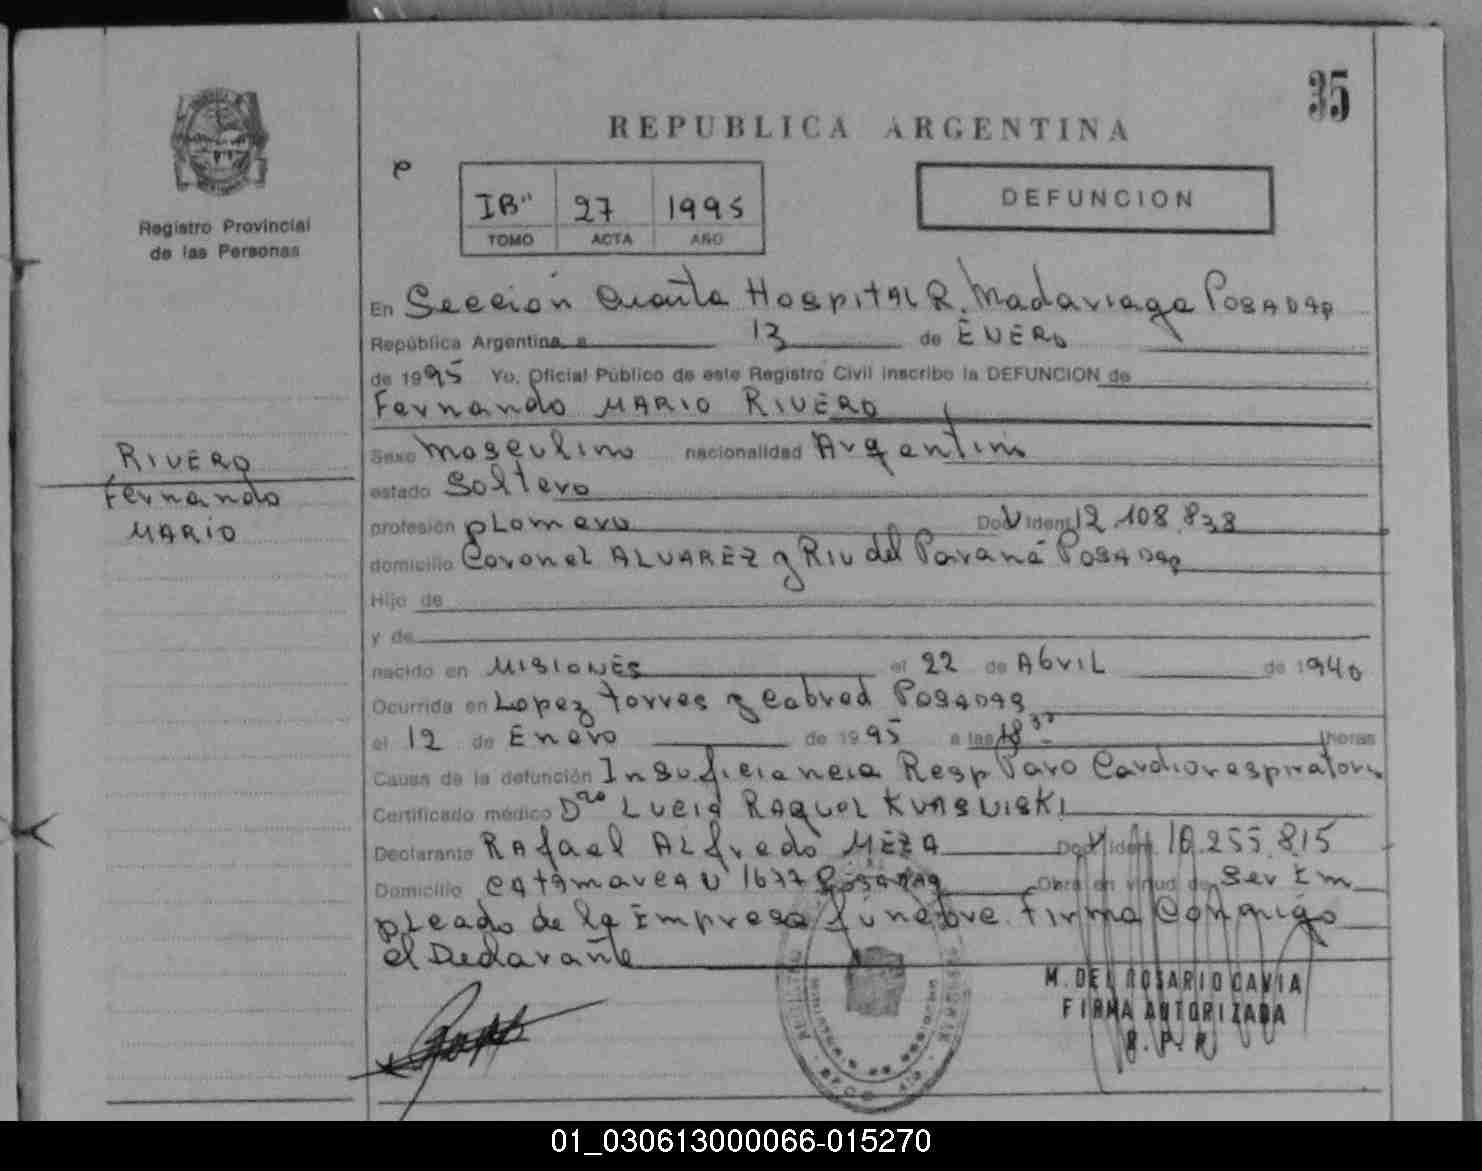 35
REPUBLICA ARGENTINA
DEFUNCION
IB" 27 1995
TOMO ACTA AÑO
Registro Provincial
de las Personas
RIVERO
Fernando
MARIO
En Sección Cuarta Hospital R. Madariaga Posadas
República Argentina, a 13 de ENERO
de 1995 Yo, Oficial Público de este Registro Civil inscribo la DEFUNCION de
Fernando MARIO RIVERO
Sexo Masculino nacionalidad Argentino
estado Soltero
profesión plomero Doc Ident 12.108.838
domicilio Coronel ALVAREZ y Rio del Paraná Posadas
Hijo de
y de
nacido en MISIONES el 22 de Abril de 1940
Ocurrida en Lopez torres y Cabred Posadas
el 12 de Enero de 1995 a las 18 30 horas
Causa de la defunción Insuficiencia Resp Paro Cardiorespiratorio
Certificado médico Dra Lucia Raquel
Declarante Rafael Alfredo MEZA Doc Ident 10.255.815
Domicilio Catamarca N 1677 Posadas Obra en virtud de Ser Em
pleado de la Empresa fúnebre. firma Conmigo
el Declarante
M. DEL ROSARIO CAVIA
FIRMA AUTORIZADA
R. P. P.
01_030613000066-015270